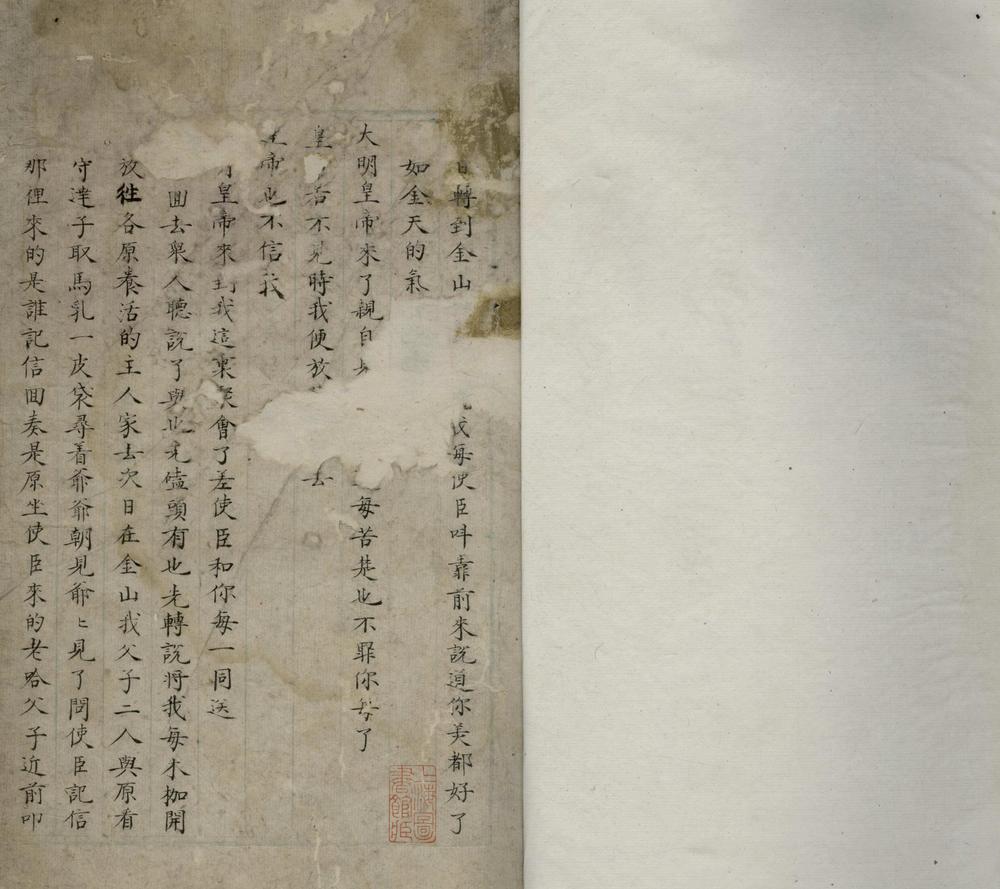 轉到金山 每使臣呌靠前來說道你美都好了
如金天的氣
大明皇帝來了親自 每苦楚也不罪你每了
皇 若不見時我便放 去
帝也不信我
皇帝來到我這裏 會了差使臣和你每一同送
回去衆人聽說了與也先磕頭有也先轉說將我每木枷開
放徃各原養活的主人家去次日在金山我父子二人與原看
守達子取馬乳一皮袋尋着爺爺朝見爺〻見了問使臣記信
那裡來的是誰記信回奏是原坐使臣來的老哈父子近前叩
上海圖書館藏